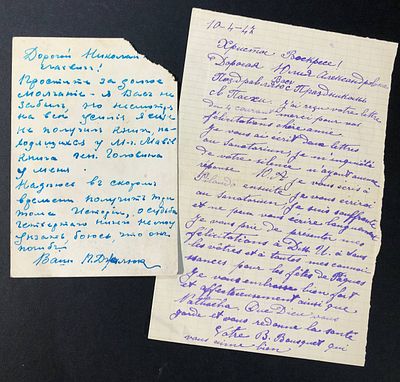 Дорогой Николай
Простите за долгое
молчание – я Васъ не
забылъ, но несмотря
на все усилия я еще
не получил книги, на-
ходящихся у M-r
Книга ген. Головина
у меня.
Надеюсь въ скоромъ
времени получить три
тома Истории, о судьбе
четвертаго ничего не могу
узнать боюсь, что онъ
погибъ
Вашъ
10-4-42
Христосъ Воскресе!
Дорогая Юлия Александровна
Поздравляю Васъ Праздникомъ
св Пасхи. J'ai reçu votre lettre
du 4 courant merci pour vos
félicitations chère amie
Je vous ai écrit deux lettres
au sanatorium je m'inquiète
de votre silence n'ayant aucune
réponse je vous écris à
ensuite je vous écrirai
au sanatorium je suis souffrante
et ne puis vous écrire longuement
Je vous prie de présenter mes
félicitations à
les vôtres et à toutes mes connais
sances pour les fêtes de Pâques
Je vous embrasse bien fort
et affectueusement ainsi que
Natacha Que Dieu vous
garde et vous redonne la santé
Votre B. Bousquet qui
vous aime bien